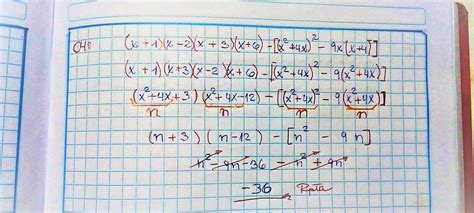 CH8 (x+1)(x-2)(x+3)(x+6)-[(x²+4x)²-9x(x+4)]
(x+1)(x+3)(x-2)(x+6)-[(x²+4x)²-9(x²+4x)]
(x²+4x+3)(x²+4x-12)-[(x²+4x)²-9(x²+4x)]
n n n n
(n+3)(n-12)-[n²-9n]
n²-9n-36-n²+9n
-36 Rpta